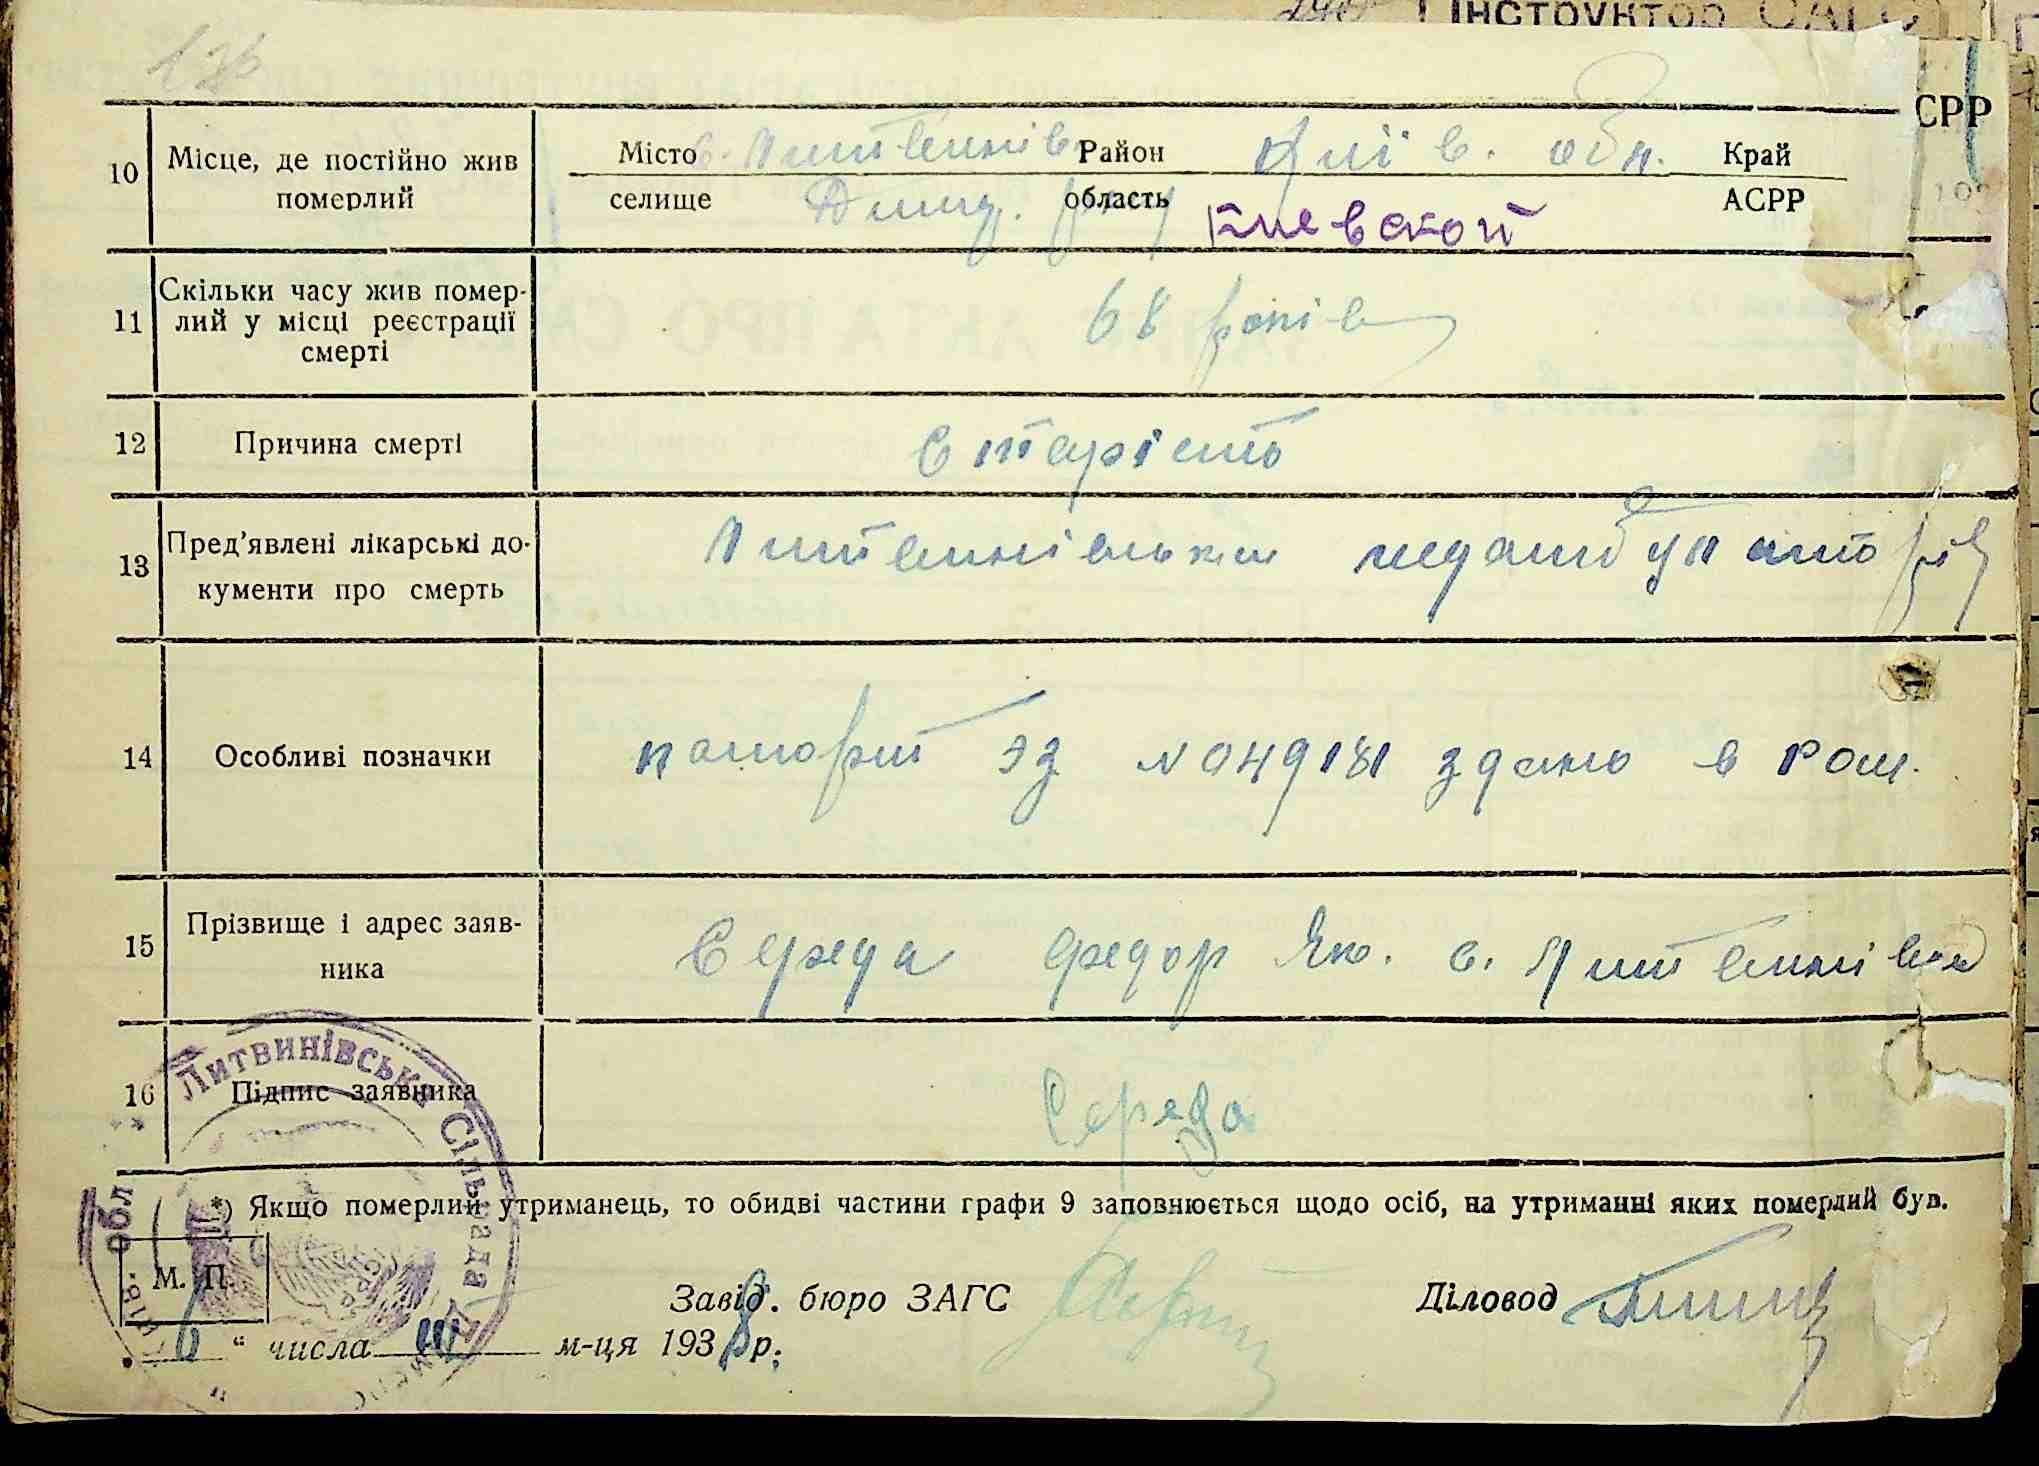 Інструктор ЗАГС
СРР
10 Місце, де постійно жив Місто с. Литвинівк Район Київ. обл. Край
померлий селище Димер. р-ну область Киевской АСРР
11 Скільки часу жив помер-
лий у місці реєстрації
смерті 68 років
12 Причина смерті старість
13 Пред’явлені лікарські до-
кументи про смерть Литвинівським медамбулаторієй
14 Особливі позначки паспорт ЭЗ №049181 здано в
15 Прізвище і адрес заяв-
ника Середа Федор Як. с. Литвинівка
16 Підпис заявника Середа
Литвинівська Сільрада
обл.
*) Якщо померлий утриманець, то обидві частини графи 9 заповнюється щодо осіб, на утриманні яких померлий був.
М. П.
Завід. бюро ЗАГС Діловод
„ 6 “ числа III м-ця 1938 р.